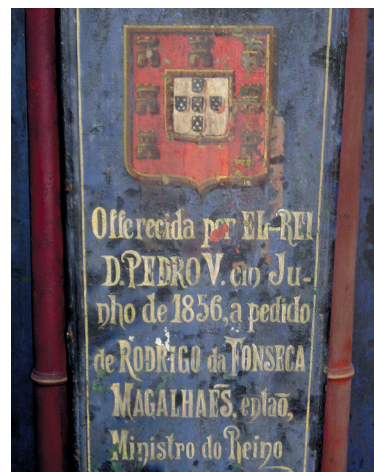 Offerecida por EL-REI
D. PEDRO V. em Ju-
nho de 1856, a pedido
de RODRIGO da FONSECA
MAGALHAẼS, entaõ,
Ministro do Reino